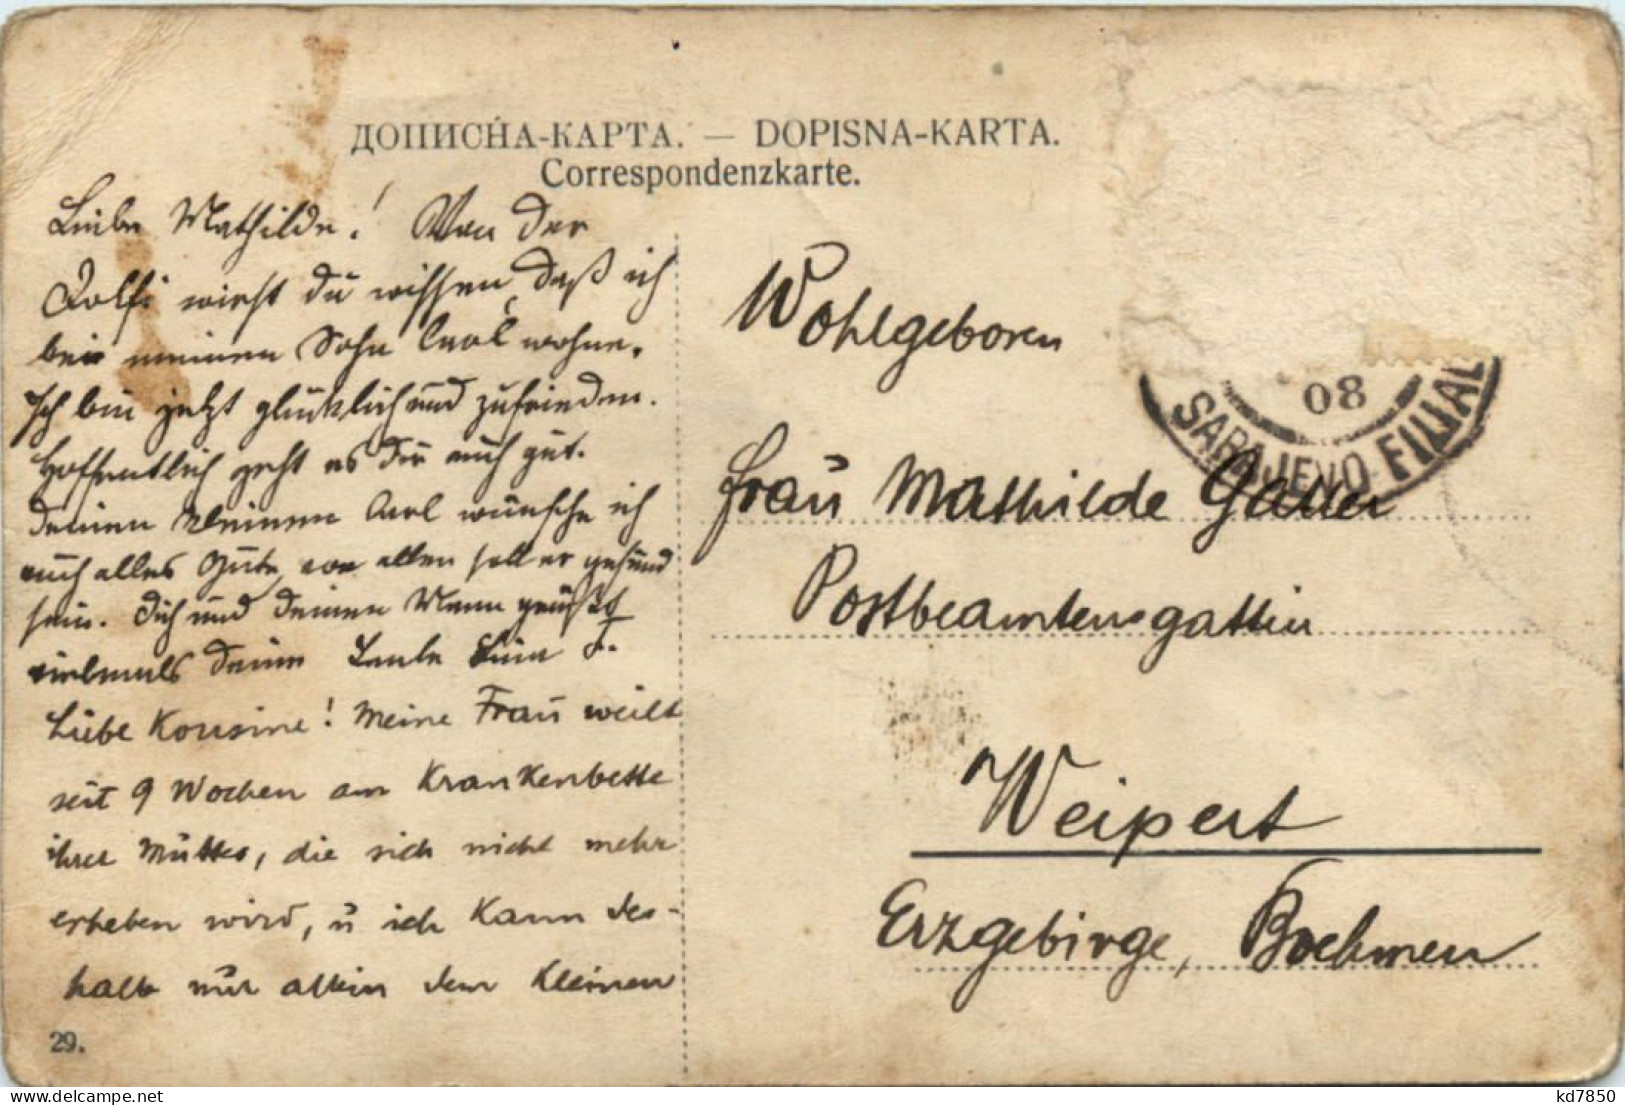 ДОПИСНА-КАРТА. — DOPISNA-KARTA.
Correspondenzkarte.
Liebe Mathilde! Von der
Dolfi wirst du wissen, daß ich
bei meinem Sohn Carl wohne.
Ich bin jetzt glücklich und zufrieden.
Hoffentlich geht es dir auch gut.
Deinem kleinen Carl wünsche ich
auch alles Gute, vor allem soll er gesund
sein. Dich und deinen Mann grüßt
vielmals deine Tante
Liebe Kousine! Meine Frau weilt
seit 9 Wochen am Krankenbette
ihrer Mutter, die sich nicht mehr
erheben wird, u ich kann des-
halb nur allein dem Kleinen
29.
08
SARAJEVO FILIJAL
Wohlgeboren
Frau Mathilde
Postbeamtensgattin
Weipert
Erzgebirge, Boehmen
delcampe.net
kd7850